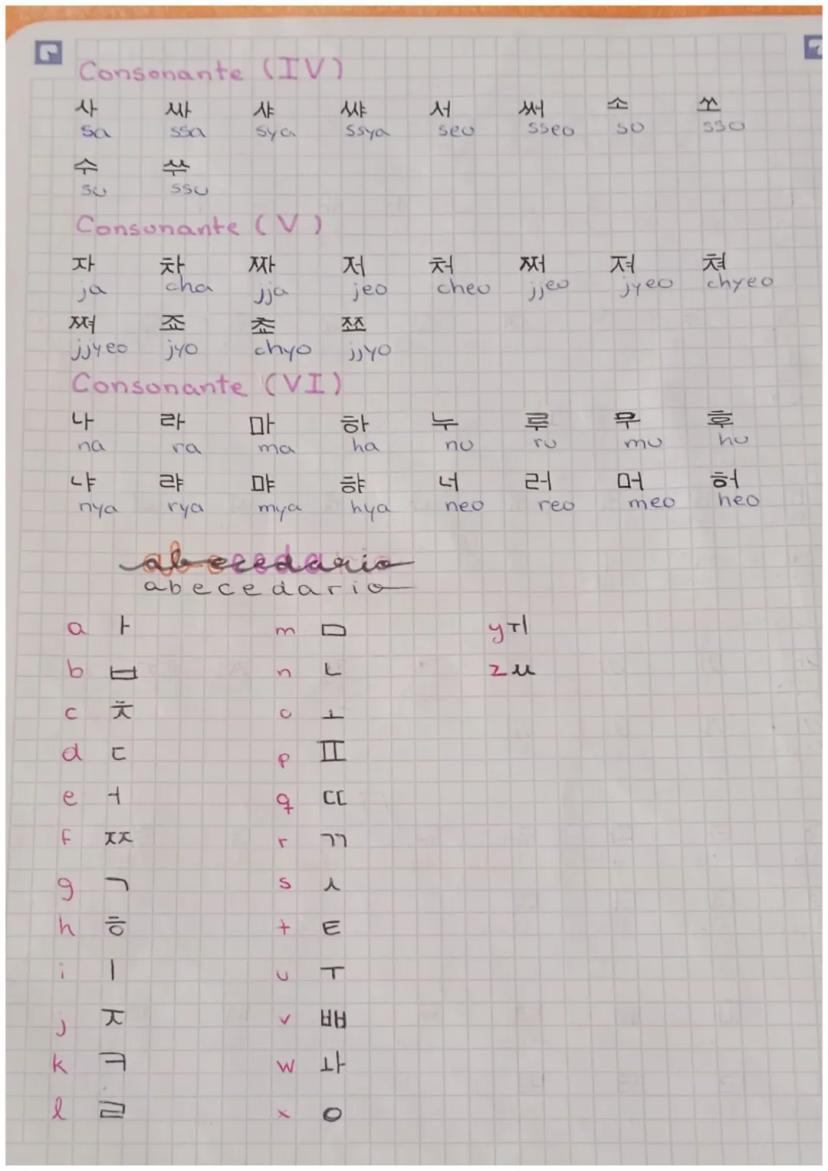 Consonante (IV)
사 싸 샤 쌰 서 써 소 쏘
sa ssa sya ssya seo sseo so sso
수 쑤
su ssu
Consonante (V)
자 차 짜 저 처 쩌 져 쳐
ja cha jja jeo cheo jjeo jyeo chyeo
쪄 죠 쵸 쬬
jjyeo jyo chyo jjyo
Consonante (VI)
나 라 마 하 누 루 무 후
na ra ma ha nu ru mu hu
냐 랴 먀 햐 너 러 머 허
nya rya mya hya neo reo meo heo
abecedario
abecedario
a ㅏ m ㅁ y ㅟ
b ㅂ n ㄴ z ㅆ
c ㅊ o ㅗ
d ㄷ p ㅍ
e ㅓ q ㄸ
f ㅉ r ㄲ
g ㄱ s ㅅ
h ㅎ t ㅌ
i ㅣ u ㅜ
j ㅈ v ㅃ
k ㅋ w ㅘ
l ㄹ x ㅇ